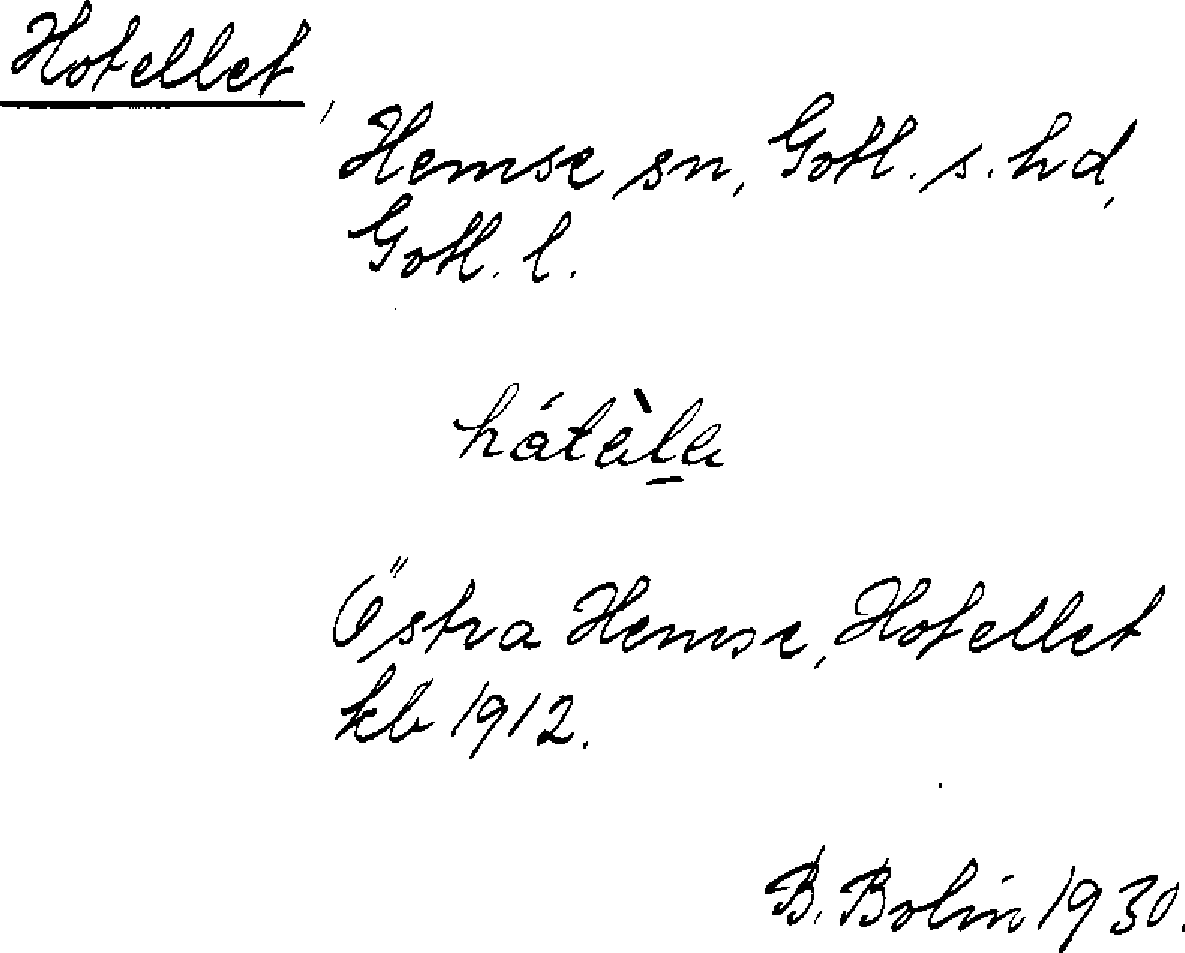 Hotellet,
Hemse sn, Gotl. s. hd,
Gotl. l.
hátàla
Östra Hemse, Hotellet
kb 1912.
B. Bolin 1930.